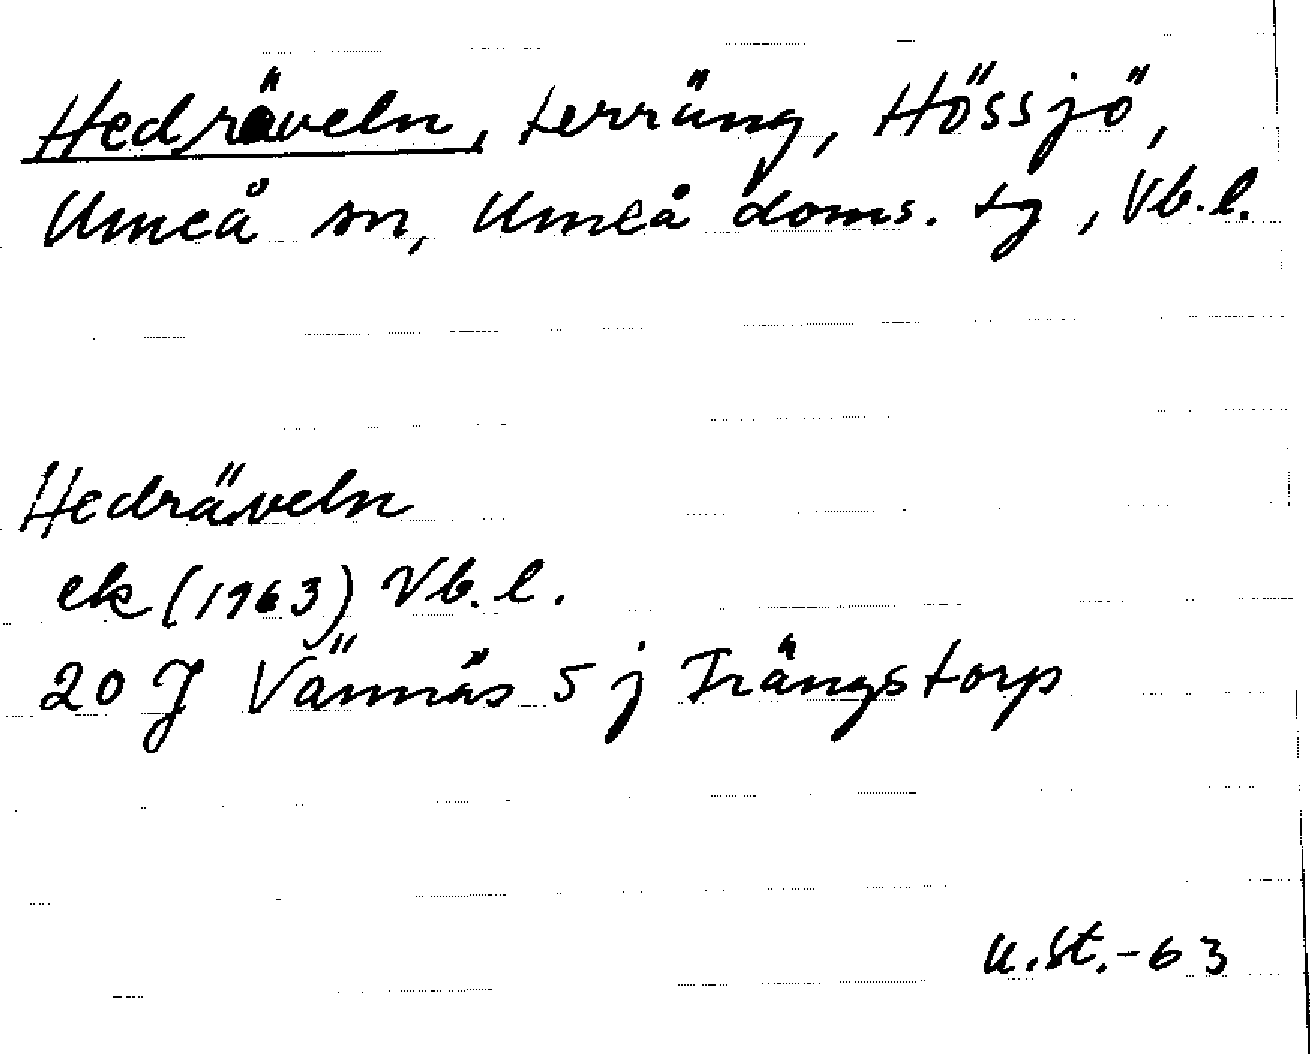 Hedräveln, terräng, Hössjö,
Umeå sn, Umeå doms. tg, Vb. l.
Hedräveln
ek (1963) Vb. l.
20 J Vännäs 5 j Trängstorp
U.St.-63